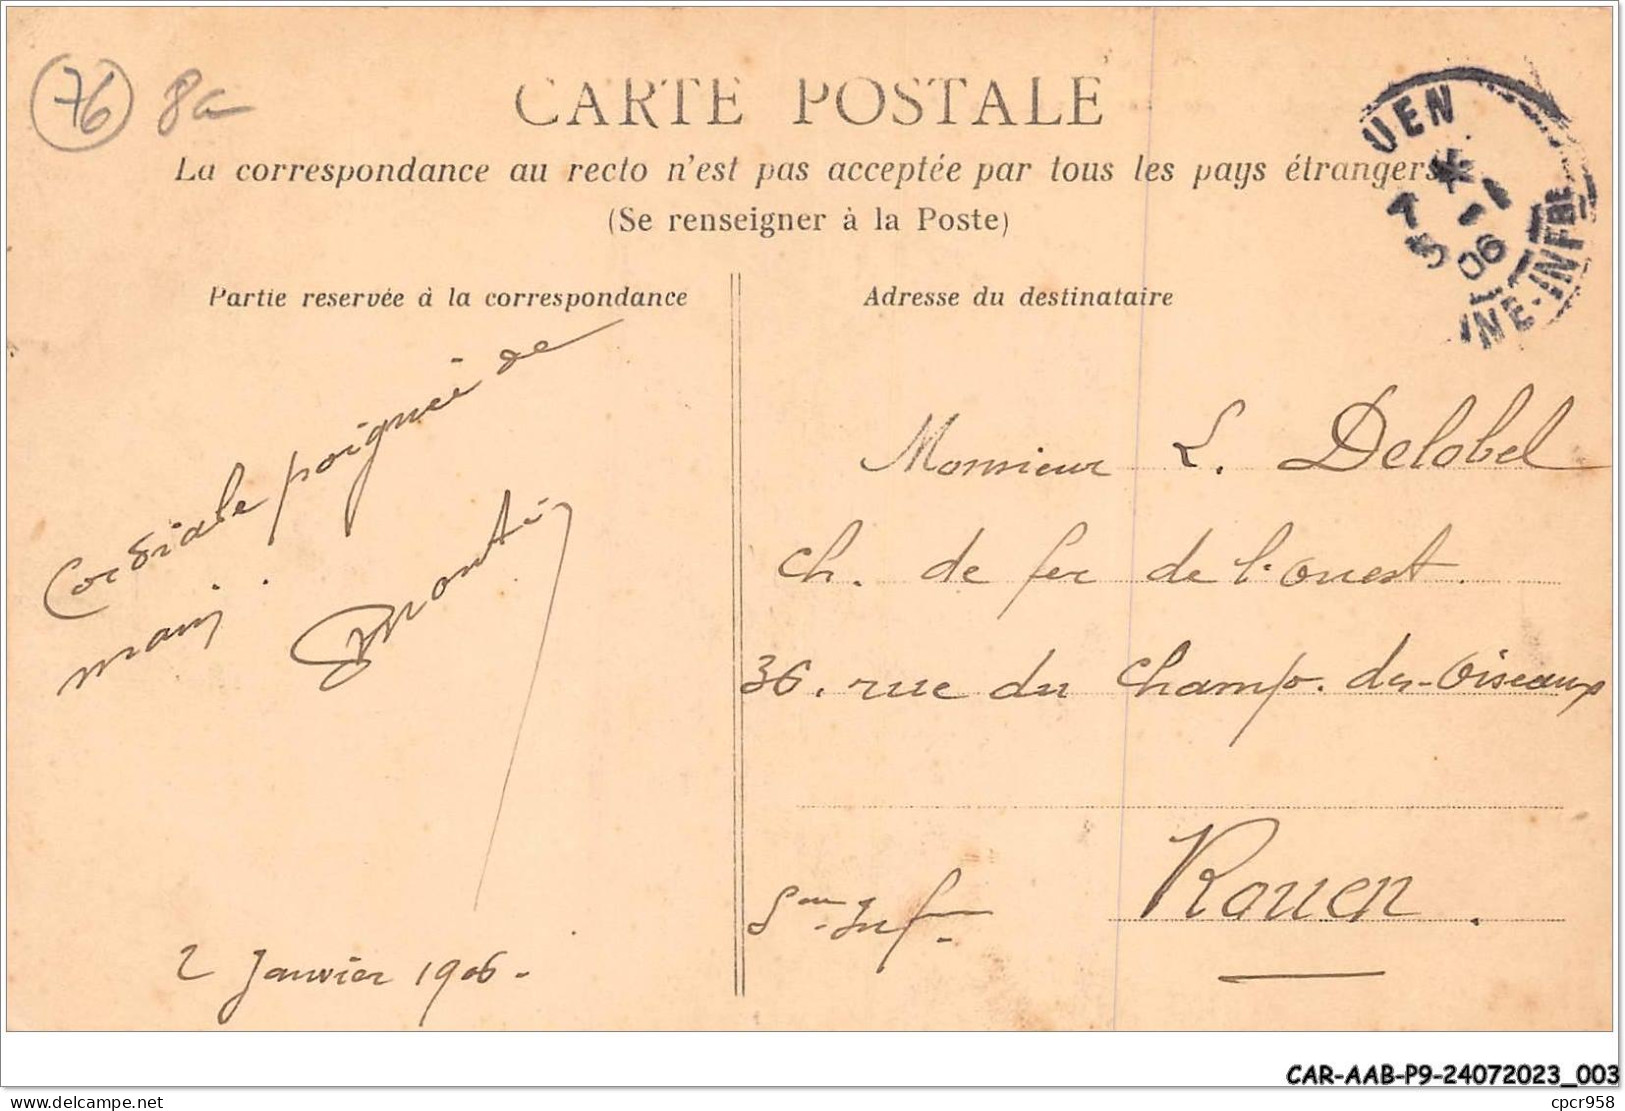 76 8a
CARTE POSTALE
La correspondance au recto n'est pas acceptée par tous les pays étrangers
(Se renseigner à la Poste)
UEN
5
1
06
NE-INFRE
Partie reservée à la correspondance
Cordiale poignée de
main.
2 Janvier 1906.
Adresse du destinataire
Monsieur L. Delobel
Ch. de fer de l'ouest.
36. rue du Champ. des-Oiseaux
Rouen.
Sne-Inf.
CAR-AAB-P9-24072023_003
delcampe.net
cpcr958